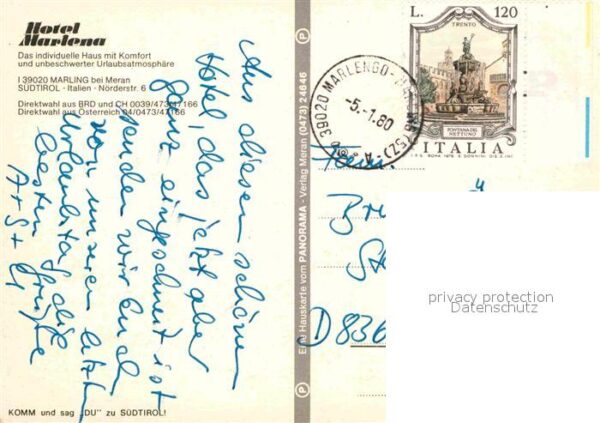 Hotel
Marlena
Das individuelle Haus mit Komfort
und unbeschwerter Urlaubsatmosphäre
I 39020 MARLING bei Meran
SÜDTIROL - Italien - Nörderstr. 6
Direktwahl aus BRD und CH 0039/473/47166
Direktwahl aus Österreich 04/0473/47166
Aus diesem schönen
Hotel, das jetzt aber
ganz eingeschneit ist
senden wir Euch
von unseren letzten
Urlaubstag die
besten Grüße
KOMM und sag „DU" zu SÜDTIROL!
Eine Hauskarte vom PANORAMA - Verlag Meran (0473) 24646
L. 120
TRENTO
FONTANA DEL
NETTUNO
ITALIA
39020 MARLENGO
-5.-1.80
Fam.
D 836
privacy protection
Datenschutz